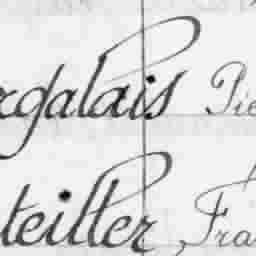 rgalais Pie
teiller Fra